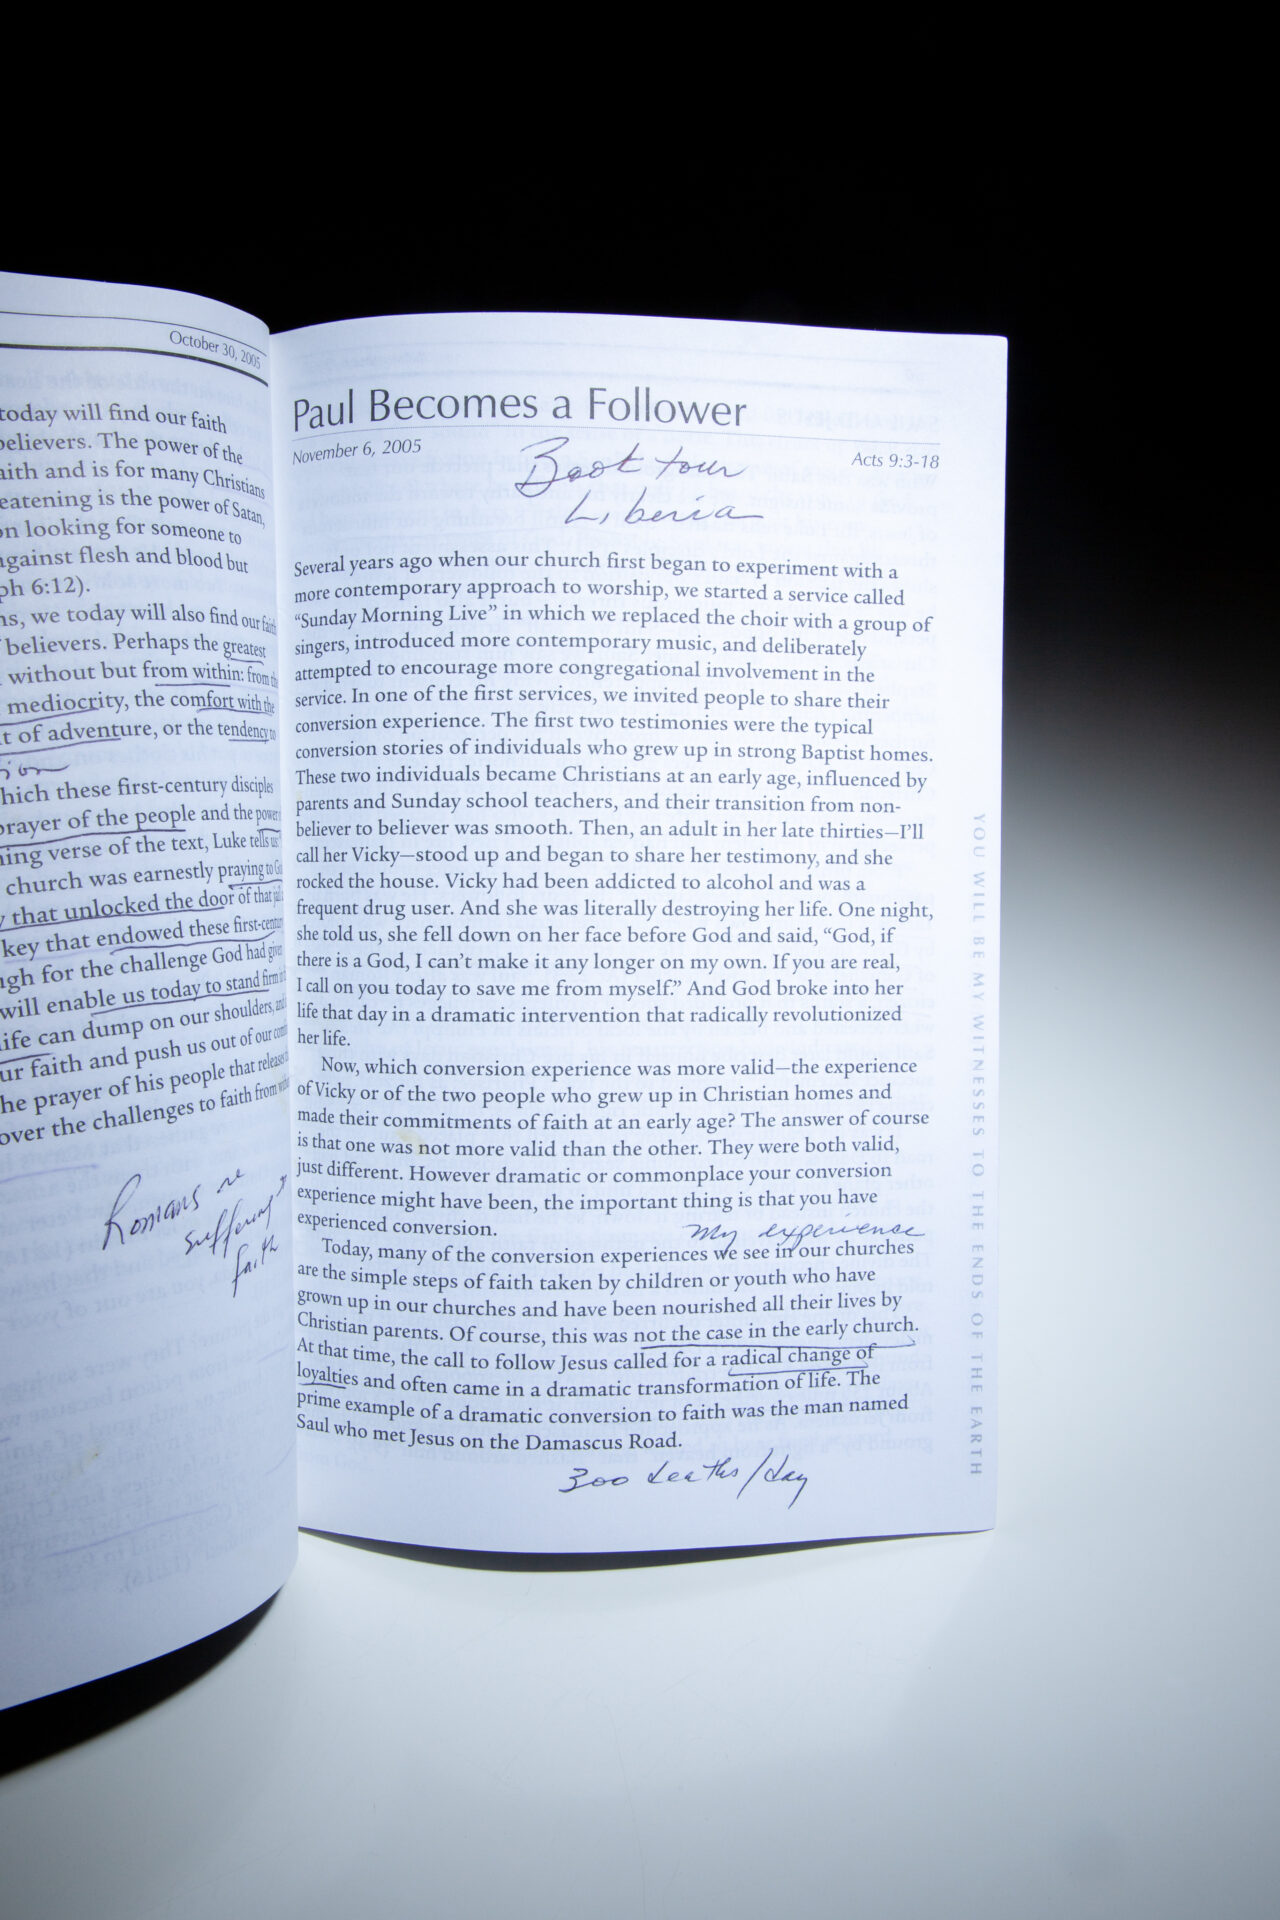 October 30, 2005
today will find our faith
believers. The power of the
aith and is for many Christians
eatening is the power of Satan,
on looking for someone to
against flesh and blood but
ph 6:12).
ns, we today will also find our faith
believers. Perhaps the greatest
without but from within: from the
mediocrity, the comfort with the
t of adventure, or the tendency to
hich these first-century disciples
prayer of the people and the power
ning verse of the text, Luke tells us
church was earnestly praying to
y that unlocked the door of that
key that endowed these first-century
ugh for the challenge God had given
will enable us today to stand firm
life can dump on our shoulders, and
ur faith and push us out of our
he prayer of his people that releases
over the challenges to faith from
Romans re
suffering &
faith
Paul Becomes a Follower
November 6, 2005
Acts 9:3-18
Book tour
Liberia
Several years ago when our church first began to experiment with a
more contemporary approach to worship, we started a service called
“Sunday Morning Live” in which we replaced the choir with a group of
singers, introduced more contemporary music, and deliberately
attempted to encourage more congregational involvement in the
service. In one of the first services, we invited people to share their
conversion experience. The first two testimonies were the typical
conversion stories of individuals who grew up in strong Baptist homes.
These two individuals became Christians at an early age, influenced by
parents and Sunday school teachers, and their transition from non-
believer to believer was smooth. Then, an adult in her late thirties—I’ll
call her Vicky—stood up and began to share her testimony, and she
rocked the house. Vicky had been addicted to alcohol and was a
frequent drug user. And she was literally destroying her life. One night,
she told us, she fell down on her face before God and said, “God, if
there is a God, I can’t make it any longer on my own. If you are real,
I call on you today to save me from myself.” And God broke into her
life that day in a dramatic intervention that radically revolutionized
her life.
Now, which conversion experience was more valid—the experience
of Vicky or of the two people who grew up in Christian homes and
made their commitments of faith at an early age? The answer of course
is that one was not more valid than the other. They were both valid,
just different. However dramatic or commonplace your conversion
experience might have been, the important thing is that you have
experienced conversion.
my experience
Today, many of the conversion experiences we see in our churches
are the simple steps of faith taken by children or youth who have
grown up in our churches and have been nourished all their lives by
Christian parents. Of course, this was not the case in the early church.
At that time, the call to follow Jesus called for a radical change of
loyalties and often came in a dramatic transformation of life. The
prime example of a dramatic conversion to faith was the man named
Saul who met Jesus on the Damascus Road.
300 deaths/day
YOU WILL BE MY WITNESSES TO THE ENDS OF THE EARTH